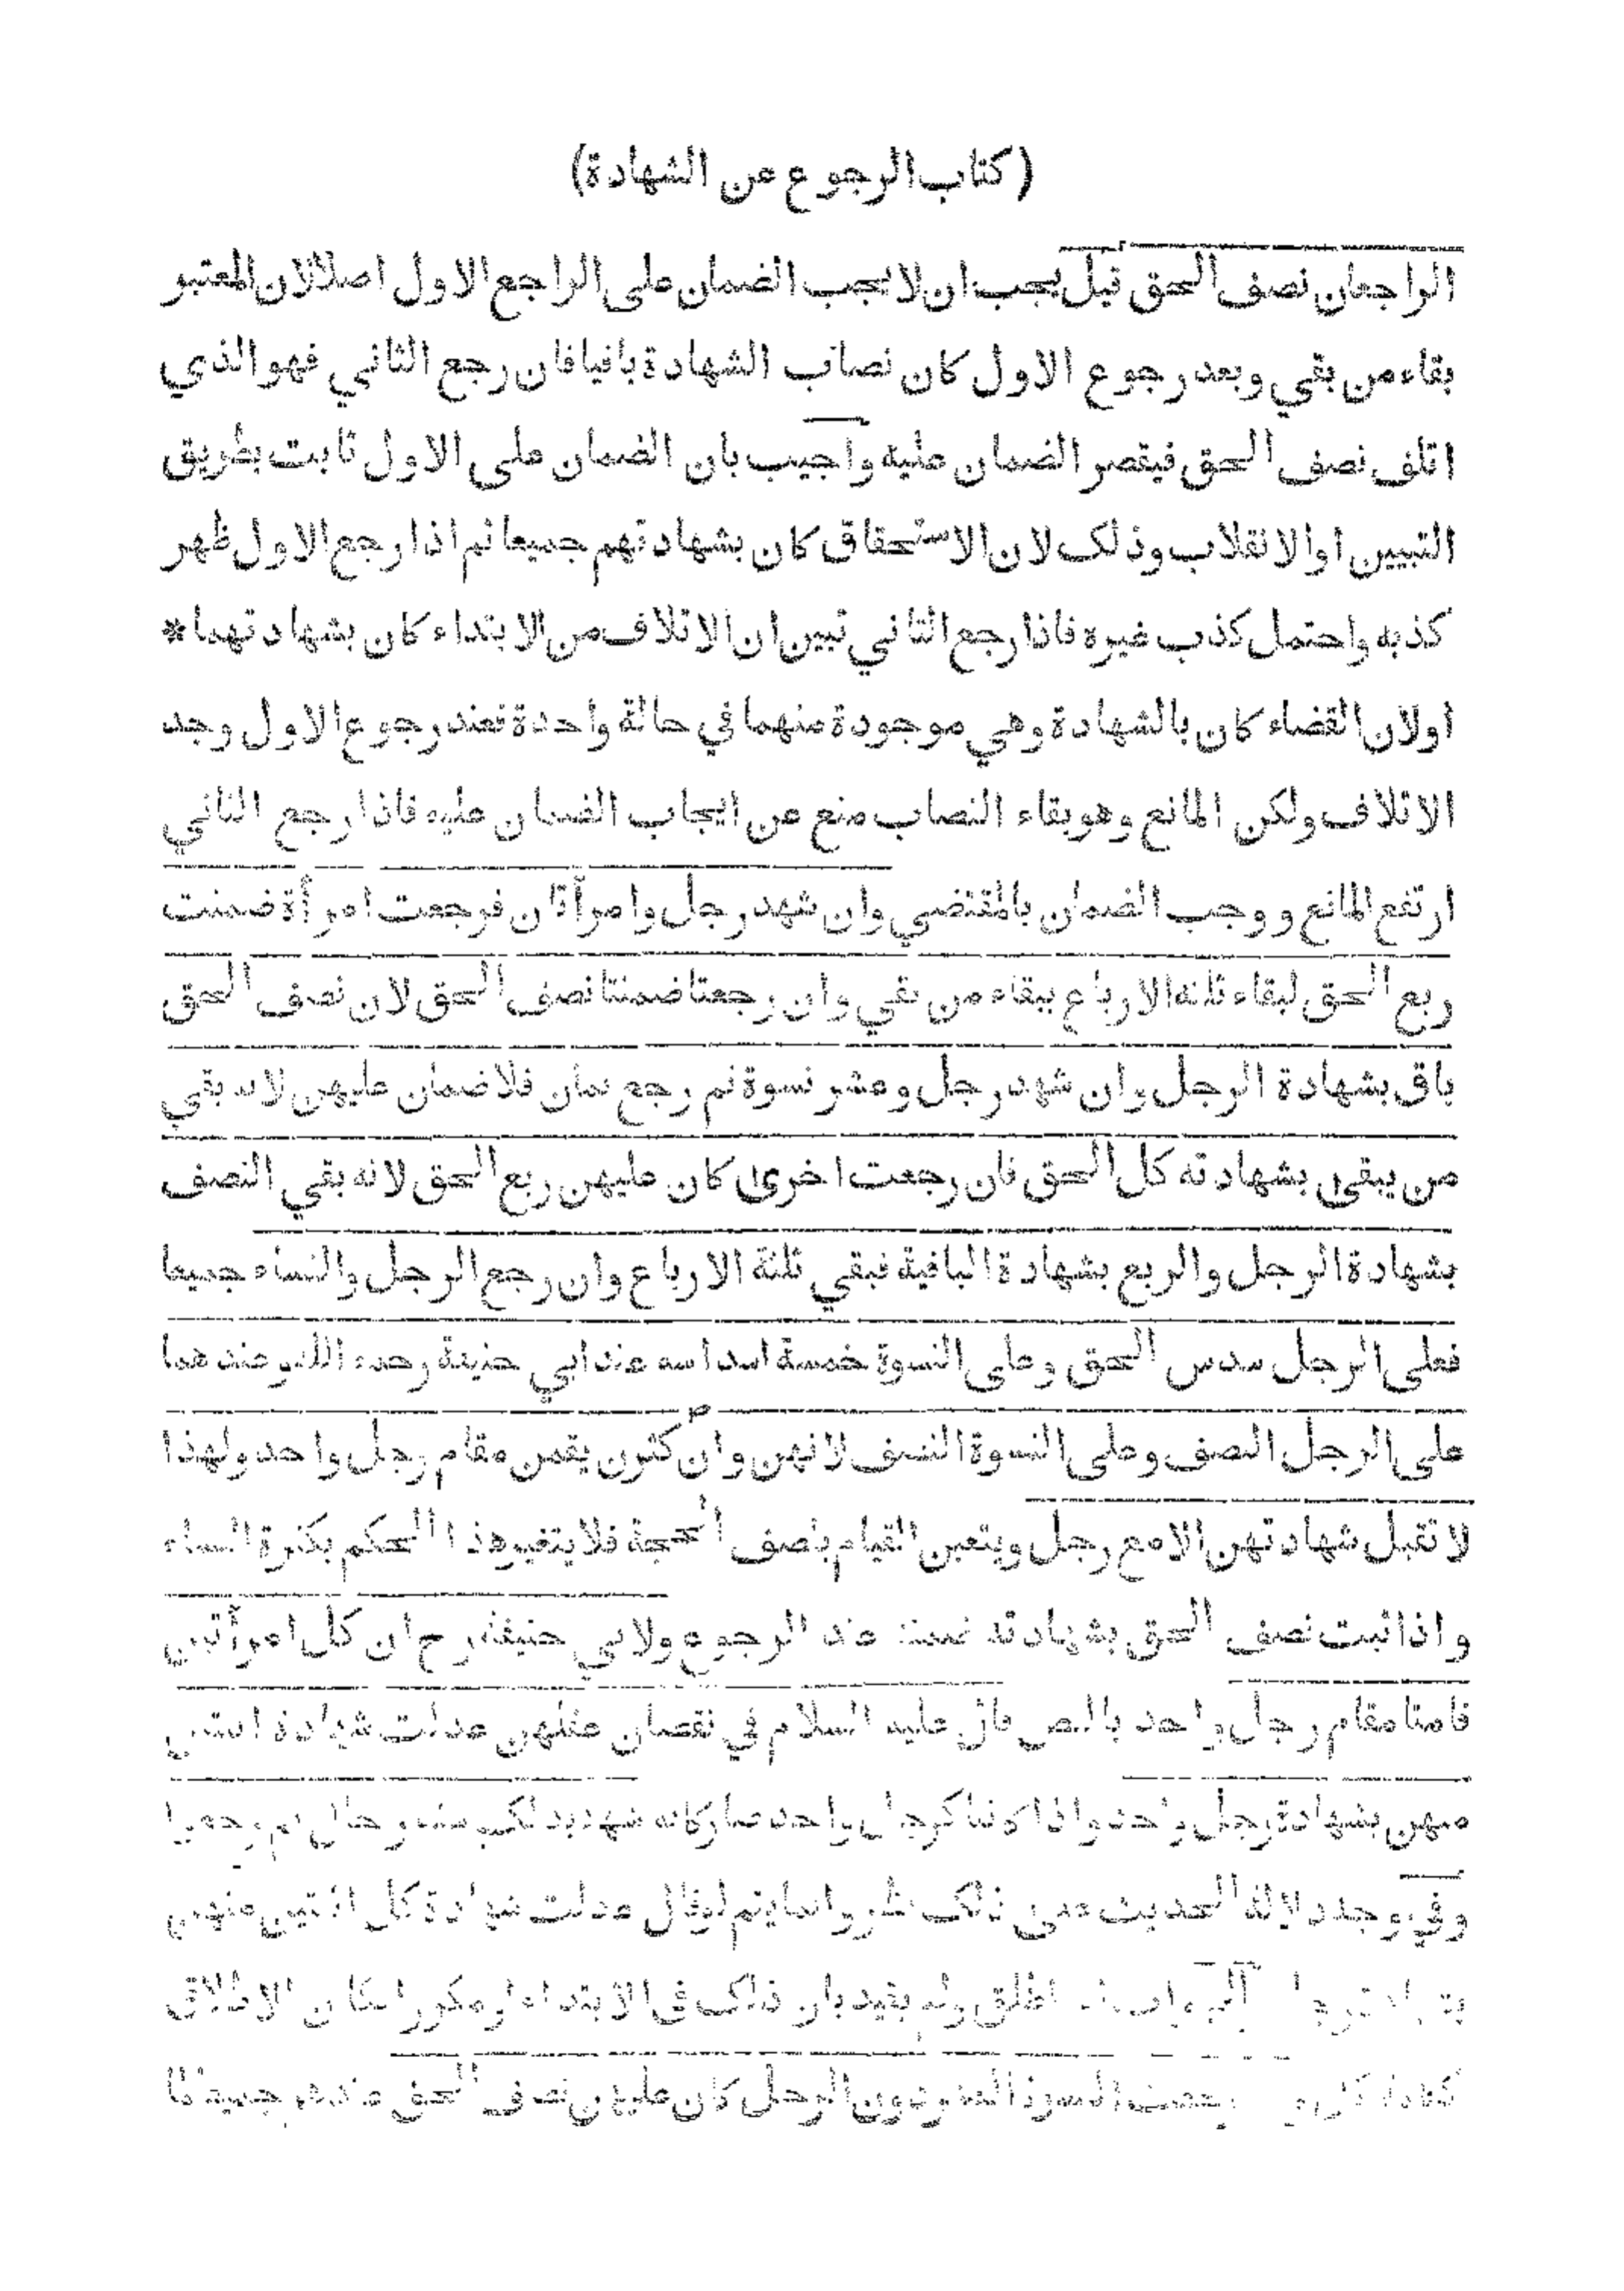 (كتاب الرجوع عن الشهادة)
الراجعان نصف الحق قيل يجب ان لا يجب الضمان على الراجع الاول اصلا لان المعتبر
بقاء من بقي وبعد رجوع الاول كان نصاب الشهادة باقيا فان رجع الثاني فهو الذي
اتلف نصف الحق فيقصر الضمان عليه واجيب بان الضمان على الاول ثابت بطريق
التبيين او الانقلاب وذلك لان الاستحقاق كان بشهادتهم جميعا ثم اذا رجع الاول ظهر
كذبه واحتمل كذب غيره فاذا رجع الثاني تبين ان الاتلاف من الابتداء كان بشهادتهما *
اولان القضاء كان بالشهادة وهي موجودة منهما في حالة واحدة فعند رجوع الاول وجد
الاتلاف ولكن المانع وهو بقاء النصاب منع عن ايجاب الضمان عليه فاذا رجع الثاني
ارتفع المانع ووجب الضمان بالمقتضي وان شهد رجل وامرأتان فرجعت امرأة ضمنت
ربع الحق لبقاء ثلثة الارباع ببقاء من بقي وان رجعتا ضمنتا نصف الحق لان نصف الحق
باق بشهادة الرجل وان شهد رجل وعشر نسوة ثم رجع ثمان فلا ضمان عليهن لانه بقي
من يبقى بشهادته كل الحق فان رجعت اخرى كان عليهن ربع الحق لانه بقي النصف
بشهادة الرجل والربع بشهادة الباقية فبقي ثلثة الارباع وان رجع الرجل والنساء جميعا
فعلى الرجل سدس الحق وعلى النسوة خمسة اسداسه عند ابي حنيفة رحمه الله وعندهما
على الرجل النصف وعلى النسوة النصف لانهن وان كثرن يقمن مقام رجل واحد ولهذا
لا تقبل شهادتهن الا مع رجل ويتعين القيام بنصف الحجة فلا يتغير هذا الحكم بكثرة النساء
واذا ثبت نصف الحق بشهادته ضمنه عند الرجوع ولابي حنيفة رح ان كل امرأتين
قامتا مقام رجل واحد بالنص قال عليه السلام في نقصان عقلهن عدلت شهادة اثنتين
منهن بشهادة رجل واحد واذا كانتا كرجل واحد صار كانه شهد بذلك ستة رجال ثم رجعوا
وفي وجه دلالة الحديث على ذلك نظر وانما يتم لو قال عدلت شهادة كل اثنتين منهن
اطلق ولم يقيد بان ذلك في الابتداء او مكررا فكان الاطلاق
النسوة العشر دون الرجل كان عليهن نصف الحق عندهم جميعا لما